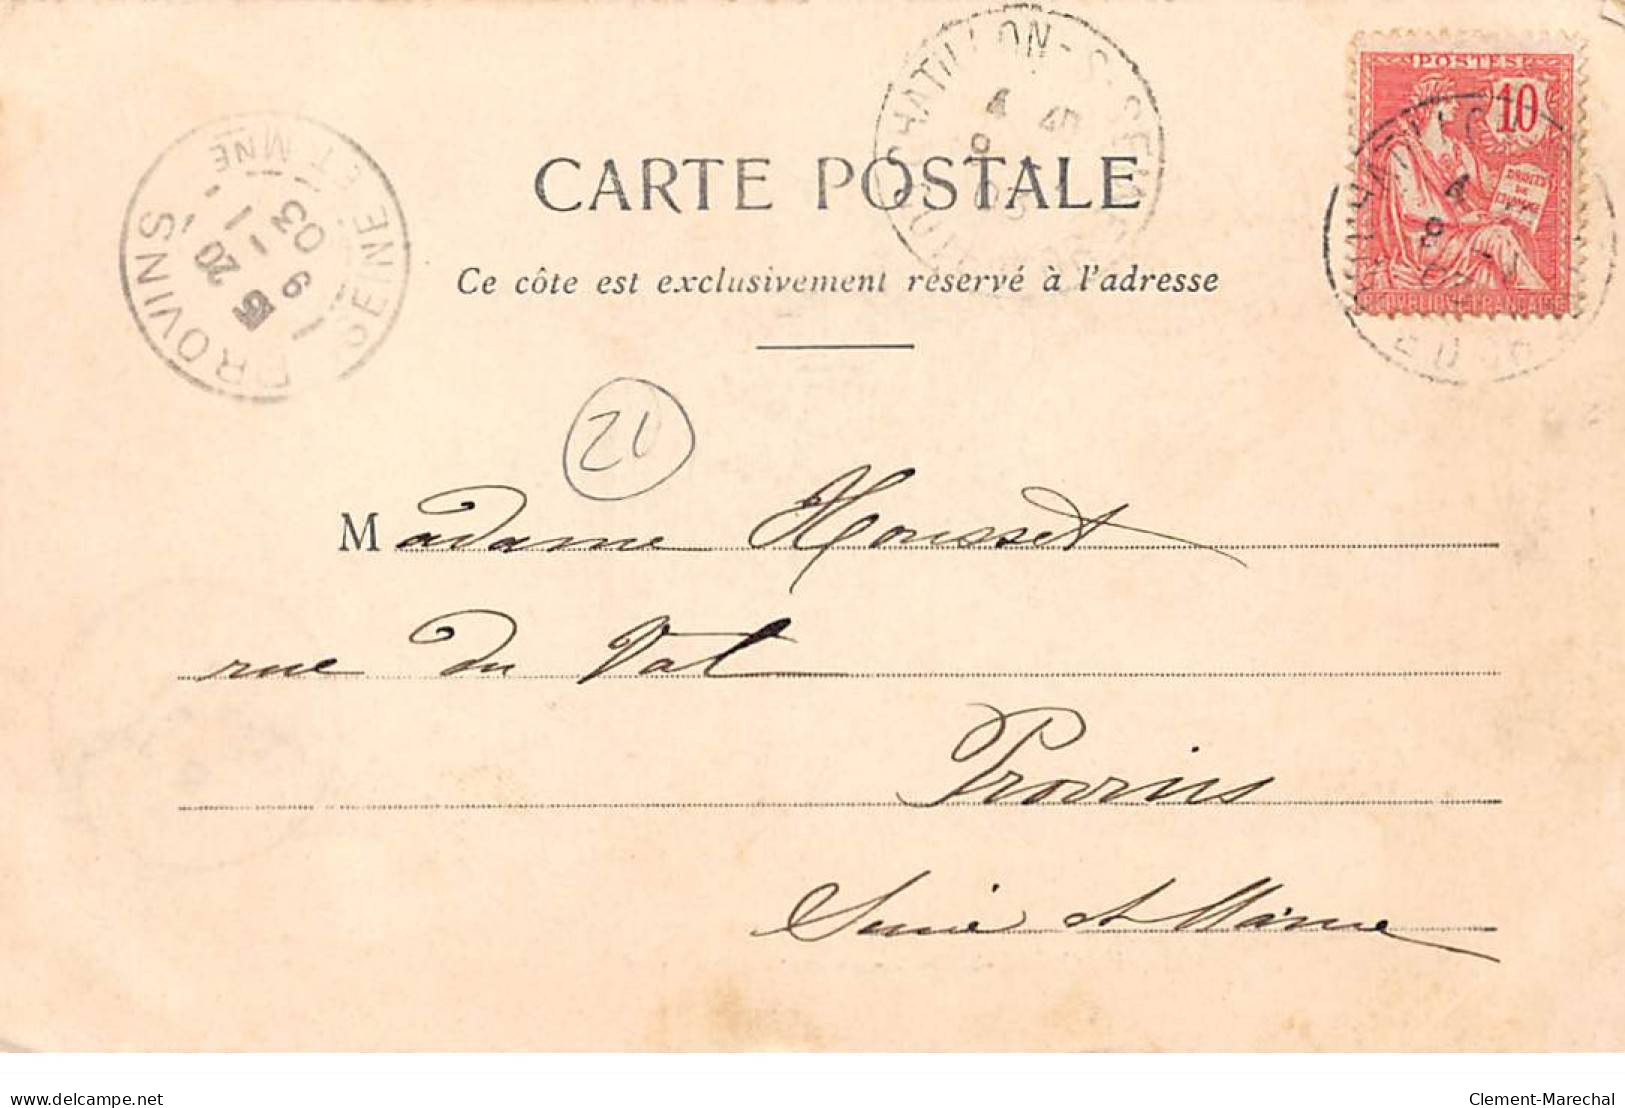 CHATILLON-S-SEINE
4 40
POSTES
10
DROITS
DE
L'HOMME
REPUBLIQUE FRANCAISE
PROVINS
SEINE ET MNE
5 20
9 - 1
03
CARTE POSTALE
Ce côte est exclusivement réservé à l'adresse
21
Madame Housset
rue du Val
Provins
Seine et Marne
delcampe.net
Clement-Marechal